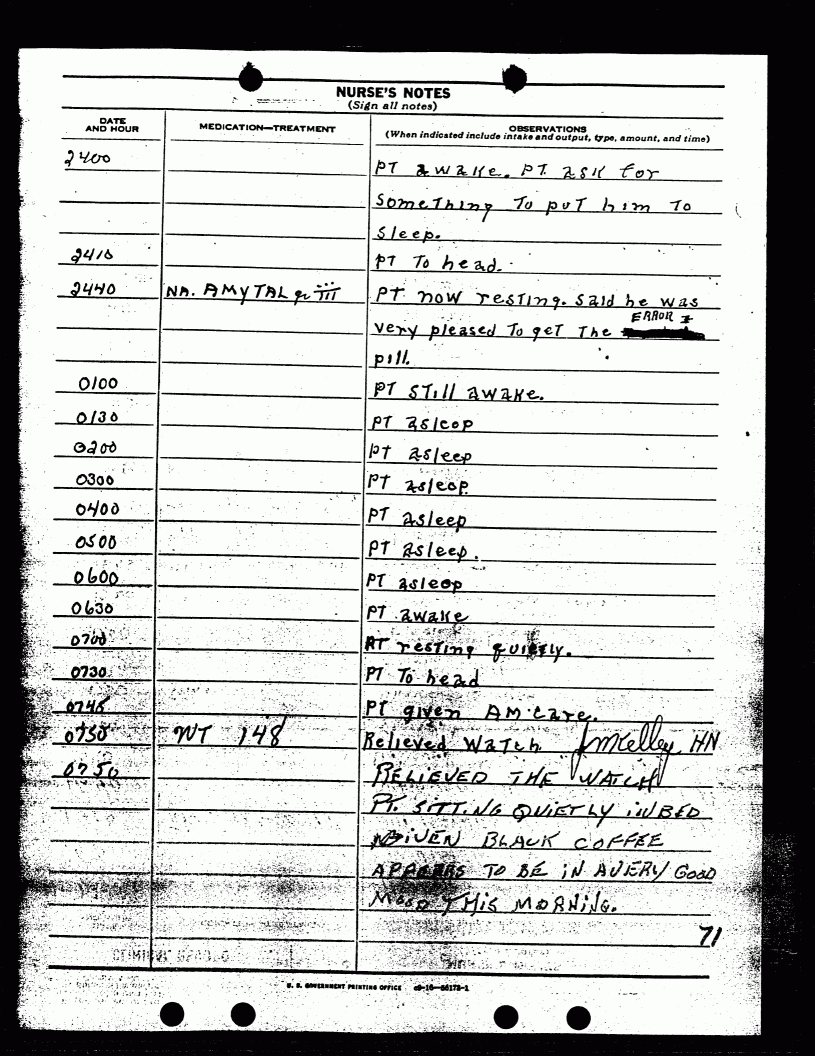 NURSE'S NOTES
(Sign all notes)
DATE AND HOUR MEDICATION—TREATMENT OBSERVATIONS
(When indicated include intake and output, type, amount, and time)
2400 PT awake. PT. ask for
something To put him To
sleep.
2410 PT To head.
2440 NA. AMYTAL gr III PT now resting. Said he was
ERROR
very pleased To get The
pill.
0100 PT still awake.
0130 PT asleep
0200 PT asleep
0300 PT asleep.
0400 PT asleep
0500 PT asleep.
0600 PT asleep
0630 PT awake
0700 PT resting quietly.
0730 PT To head
0745 PT given AM care.
0750 WT 148 Relieved Watch JMKelley HN
0750 RELIEVED THE WATCH
PT. SITTING QUIETLY IN BED
GIVEN BLACK COFFEE
APPEARS TO BE IN A VERY GOOD
MOOD THIS MORNING.
71
U. S. GOVERNMENT PRINTING OFFICE